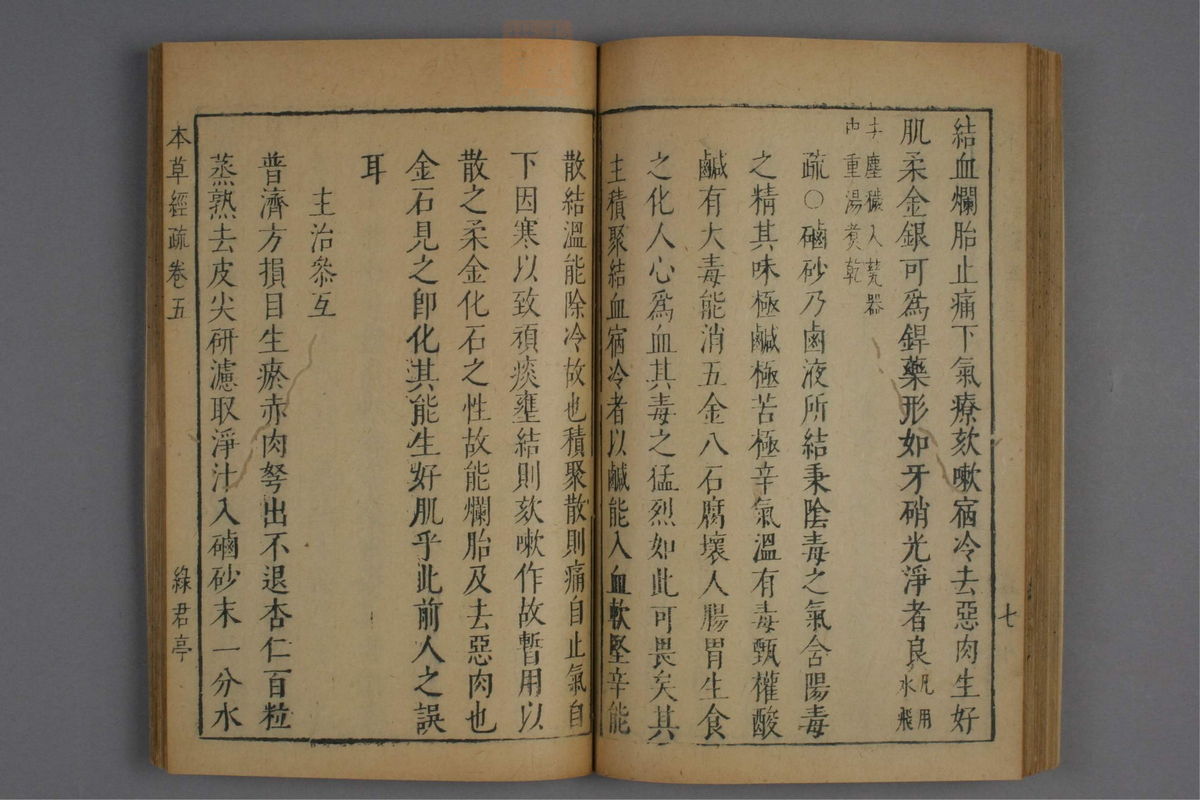 結血爛胎止痛下氣療欬嗽宿冷去惡肉生好
肌柔金銀可為銲藥形如牙硝光淨者良凡用水飛
去塵穢入甆器中重湯煮乾
疏○磠砂乃鹵液所結秉陰毒之氣含陽毒
之精其味極鹹極苦極辛氣溫有毒甄權酸
鹹有大毒能消五金八石腐壞人腸胃生食
之化人心為血其毒之猛烈如此可畏矣其
主積聚結血宿冷者以鹹能入血軟堅辛能
七
散結溫能除冷故也積聚散則痛自止氣自
下因寒以致頑痰壅結則欬嗽作故暫用以
散之柔金化石之性故能爛胎及去惡肉也
金石見之卽化其能生好肌乎此前人之誤
耳
主治參互
普濟方損目生瘀赤肉努出不退杏仁百粒
蒸熟去皮尖研濾取淨汁入磠砂末一分水
本草經疏 卷五 綠君亭